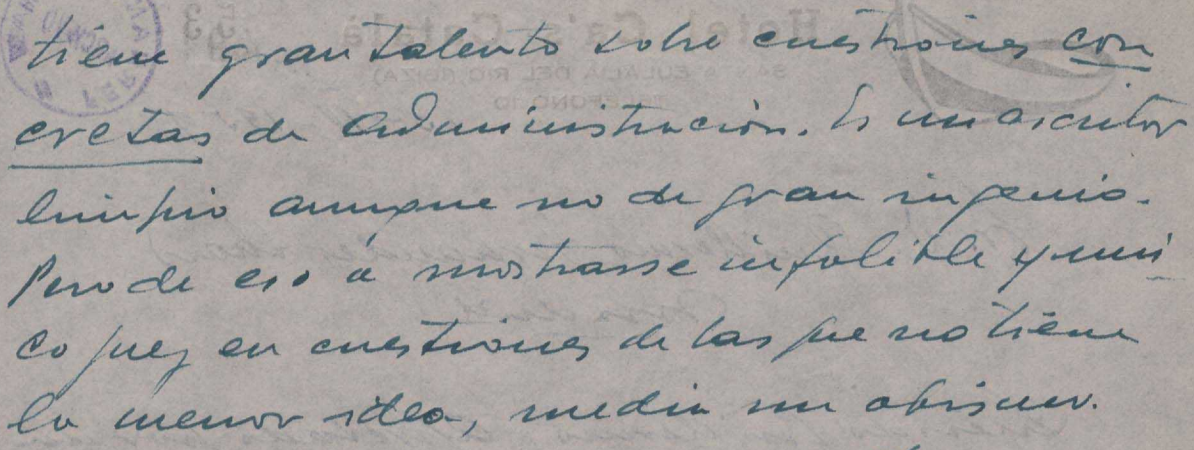 tiene gran talento sobre cuestiones con
cretas de administración. Es un escritor
limpio aunque no de gran ingenio.
Pero de eso a mostrarse infalible y úni
co juez en cuestiones de las que no tiene
la menor idea, media un abismo.